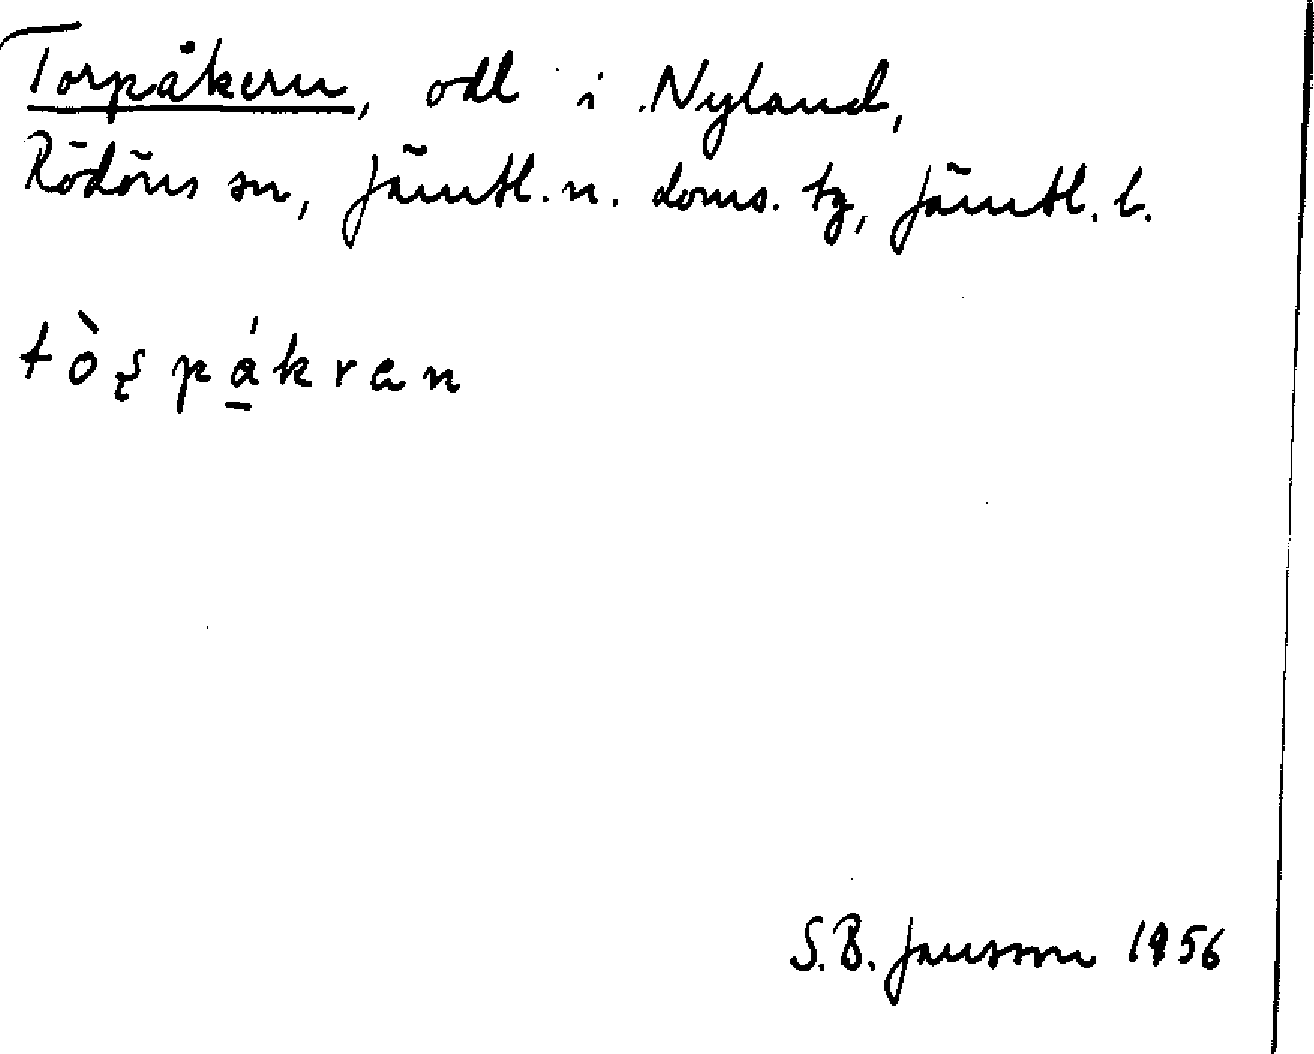 Torpåkern, odl i Nyland,
Rödöns sn, Jämtl. n. doms. tg, Jämtl. l.
tòʂpá̱kran
S.B. Jansson 1956